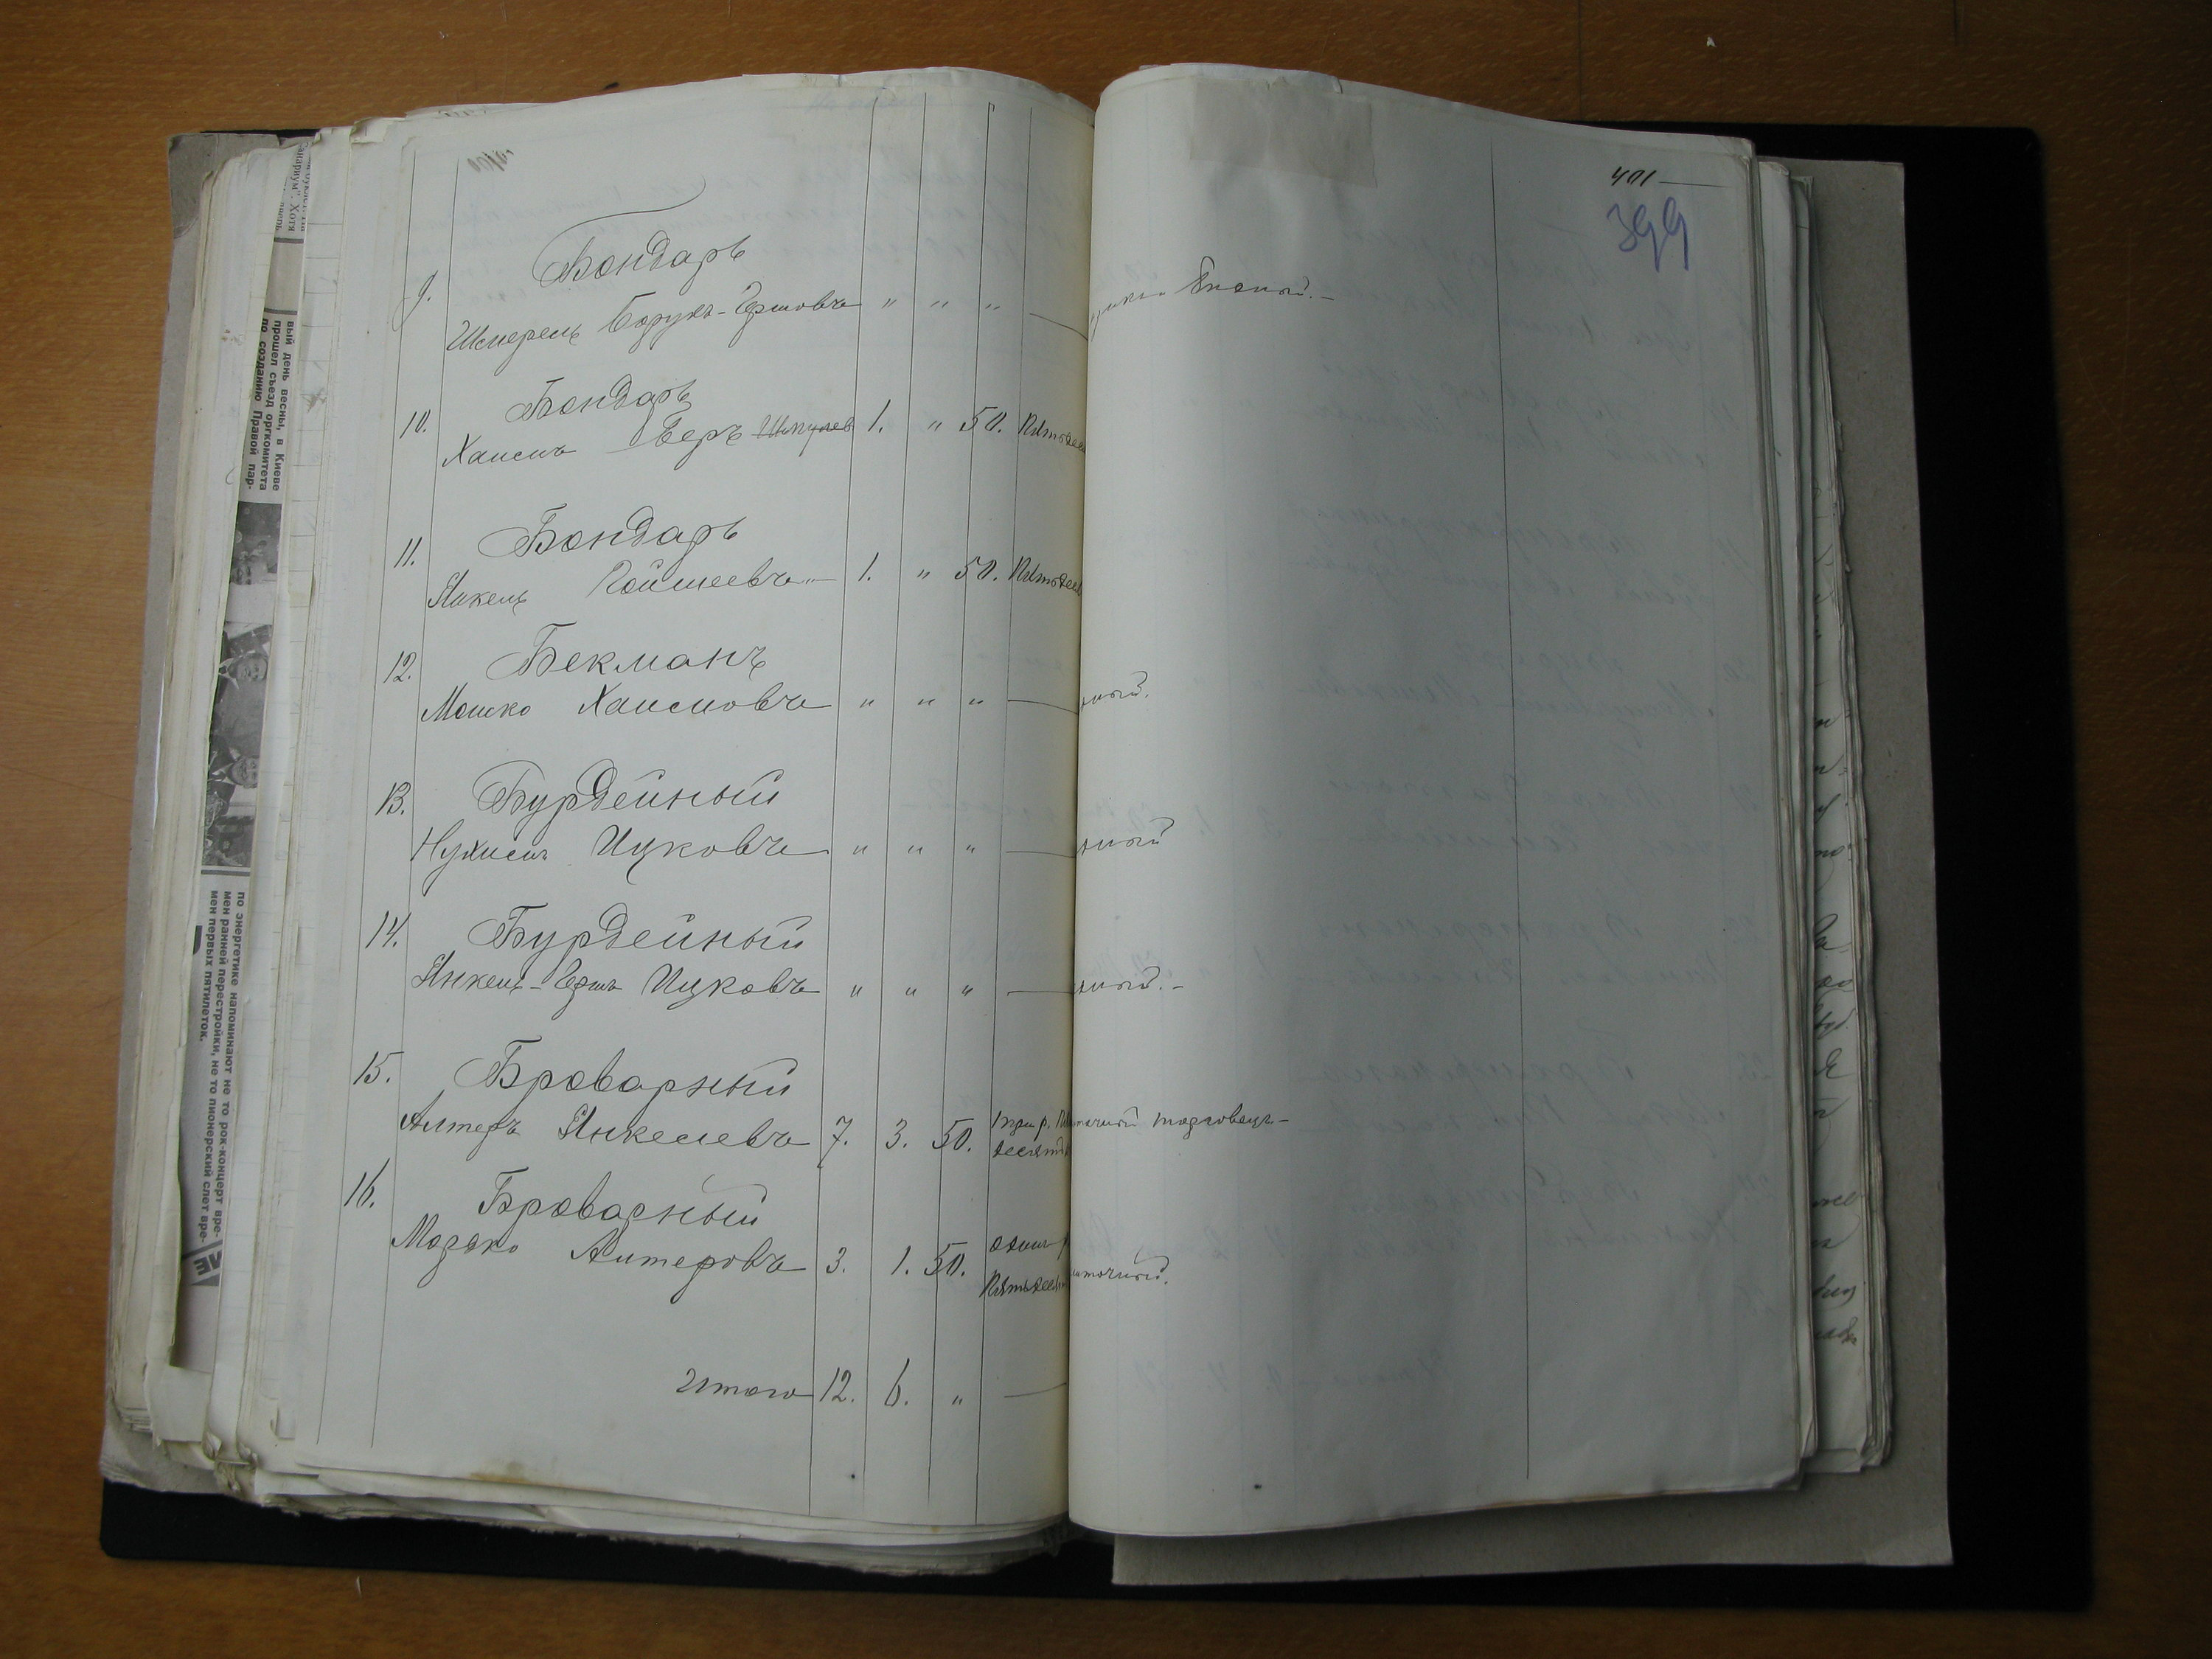 401
399
Бондарь
9. Шмерель Борухъ-Гершовъ " " " — Бѣдный. —
Бондарь
10. Хаимъ Беръ Шмулев 1. " 50. Пятьдес
Бондарь
11. Янкель Гойшеевъ " 1. " 50. Пятьдес
Бекманъ
12. Мошко Хаимовъ " " " — ный.
Бурдейный
13. Нухимъ Ицковъ " " " — ный
Бурдейный
14. Янкель-Гершъ Ицковъ " " " — ный. —
Броварный
15. Алтеръ Янкелевъ 7. 3. 50. три р. точный торговецъ —
десять
Броварный
16. Мордко Алтеровъ 3. 1. 50. одинъ р
Пятьдесят точный.
Итого 12. 6. " —
вый день весны, в Киеве
прошел съезд оргкомитета
по созданию Правой пар-
по энергетике напоминают не то рок-концерт вре-
мен ранней перестройки, не то пионерский слет вре-
мен первых пятилеток.